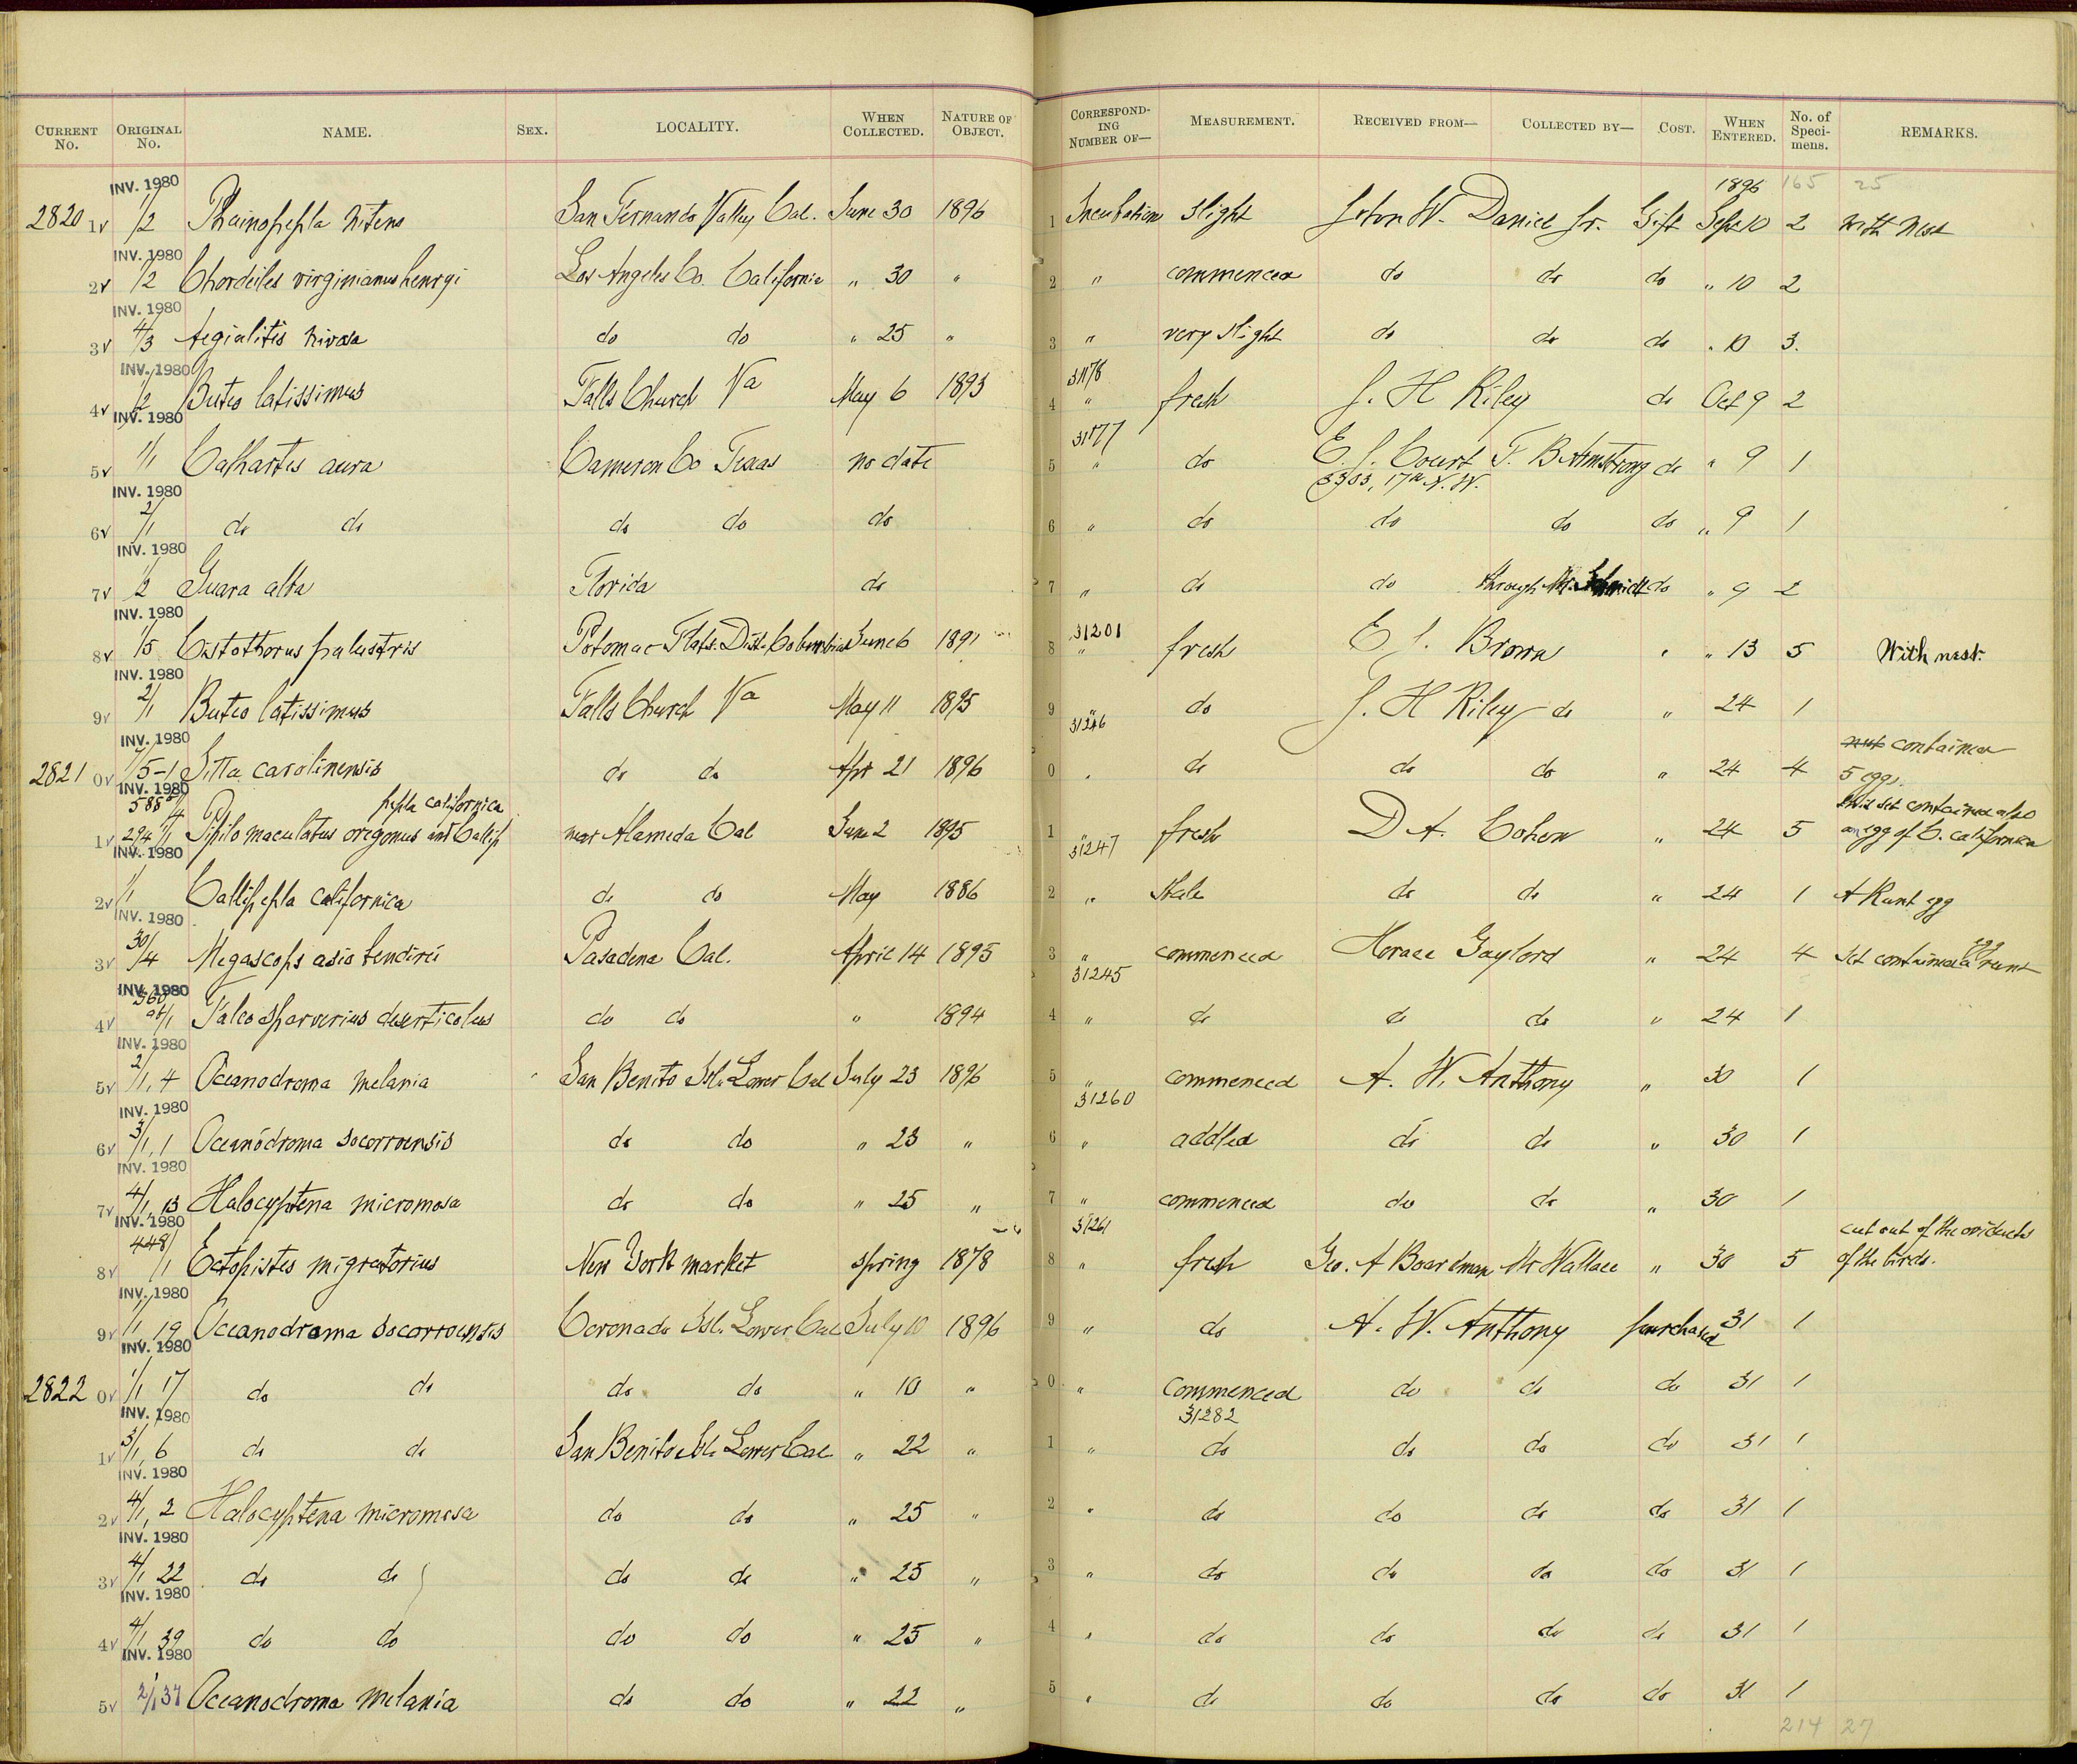 CURRENT No. ORIGINAL No. NAME. SEX. LOCALITY. WHEN COLLECTED. NATURE OF OBJECT. CORRESPONDING NUMBER OF— MEASUREMENT. RECEIVED FROM— COLLECTED BY— COST. WHEN ENTERED. No. of Specimens. REMARKS.
INV. 1980 1896 165 25
2820 1 1/2 Phainopepla nitens San Fernando Valley Cal. June 30 1896 1 Incubation slight John W. Daniel Jr. Gift Sept 10 2 with nest
INV. 1980
2 1/2 Chordeiles virginianus henryi Los Angeles Co. California " 30 " 2 " commenced do do do " 10 2
INV. 1980
3 4/3 Aegialitis nivosa do do " 25 " 3 " very slight do do do " 10 3.
INV. 1980 31178
4 1/2 Buteo latissimus Falls Church Va May 6 1893 4 " fresh J. H Riley do Oct 9 2
INV. 1980 31177
5 1/1 Cathartes aura Cameron Co Texas no date 5 " do E. J. Court F. B Armstrong do " 9 1
INV. 1980 17th N. W.
6 2/1 do do do do do 6 " do do do do " 9 1
INV. 1980
7 1/2 Guara alba Florida do 7 " do do through Mr. Schmidt do " 9 2
INV. 1980 31201
8 1/5 Cistothorus palustris Potomac Flats. Dist. Columbia June 6 1891 8 " fresh E J. Brown " " 13 5 With nest.
INV. 1980
9 2/1 Buteo latissimus Falls Church Va May 11 1895 9 " do J. H Riley do " 24 1
INV. 1980 31246 nest contained
2821 0 1/5-1 Sitta carolinensis do do Apr 21 1896 0 " do do do " 24 4 5 eggs.
INV. 1980 588 1/4 pepla californica this set contained also
1 294 1/1 Pipilo maculatus oregonus and Callip near Alameda Cal June 2 1895 1 " fresh D A. Cohen " 24 5 an egg of C. californica
INV. 1980 31247
2 1/1 Callipepla californica do do May 1886 2 " Stale do do " 24 1 A Runt egg
INV. 1980
3 30/4 Megascops asio bendirei Pasadena Cal. April 14 1895 3 " commenced Horace Gaylord " 24 4 Set contained a runt egg
INV. 1980 31245
4 560 1/1 Falco sparverius deserticolus do do " 1894 4 " do do do " 24 1
INV. 1980
5 2/1, 4 Oceanodroma melania San Benito Isl. Lower Cal July 23 1896 5 " commenced A. W. Anthony " 30 1
INV. 1980 31260
6 3/1, 1 Oceanodroma socorroensis do do " 23 " 6 " addled do do " 30 1
INV. 1980
7 4/1, 13 Halocyptena micromosa do do " 25 " 7 " commenced do do " 30 1
INV. 1980 31261 cut out of the oviducts
8 448 1/1 Ectopistes migratorius New York market spring 1878 8 " fresh Geo. A Boardman Mr Wallace " 30 5 of the birds.
INV. 1980
9 1/1, 19 Oceanodroma socorroensis Coronado Isl. Lower Cal July 10 1896 9 " do A. W. Anthony purchased 31 1
INV. 1980
2822 0 1/1 17 do do do do " 10 " 0 " Commenced do do do 31 1
INV. 1980 31282
1 3/1, 6 do do San Benito Isl. Lower Cal " 22 " 1 " do do do do 31 1
INV. 1980
2 4/1, 2 Halocyptena micromosa do do " 25 " 2 " do do do do 31 1
INV. 1980
3 4/1 22 do do do do " 25 " 3 " do do do do 31 1
INV. 1980
4 4/1, 39 do do do do " 25 " 4 " do do do do 31 1
INV. 1980
5 2/1 37 Oceanodroma melania do do " 22 " 5 " do do do do 31 1
214 27